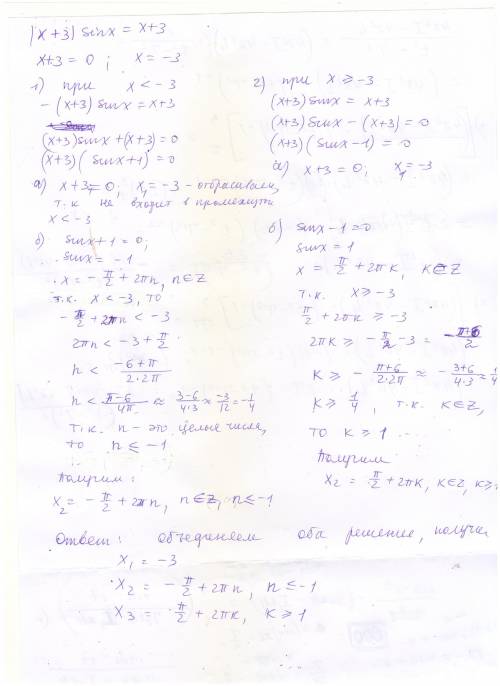 |x+3| sinx = x+3
x+3 = 0 ; x = -3
1) при x < -3
- (x+3) sinx = x+3
(x+3)sinx + (x+3) = 0
(x+3)(sinx+1) = 0
а) x+3 = 0; x₁ = -3 - отбрасываем,
т.к не входит в промежутки
x < -3
б) sinx+1 = 0;
sinx = -1
x = - π/2 + 2πn, n∈Z
т.к. x < -3, то
- π/2 + 2πn < -3
2πn < -3 + π/2
n < (-6+π)/(2·2π)
n < (π-6)/4π ≈ (3-6)/(4·3) ≈ -3/12 = -1/4
т.к. n - это целые числа,
то n ≤ -1
Получим:
x₂ = - π/2 + 2πn, n∈Z, n ≤ -1
2) при x ≥ -3
(x+3)sinx = x+3
(x+3)sinx - (x+3) = 0
(x+3)(sinx-1) = 0
а) x+3 = 0; x₁ = -3
б) sinx-1 = 0
sinx = 1
x = π/2 + 2πk, k∈Z
т.к. x ≥ -3
π/2 + 2πk ≥ -3
2πk ≥ - π/2 - 3 = - (π+6)/2
k ≥ - (π+6)/(2·2π) ≈ - (3+6)/(4·3) = 1/4
k ≥ 1/4 , т.к. k∈Z,
то k ≥ 1
Получим
x₂ = π/2 + 2πk, k∈Z, k ≥
Ответ: объеденяем оба решение, получи
x₁ = -3
x₂ = - π/2 + 2πn, n ≤ -1
x₃ π/2 + 2πk, k ≥ 1